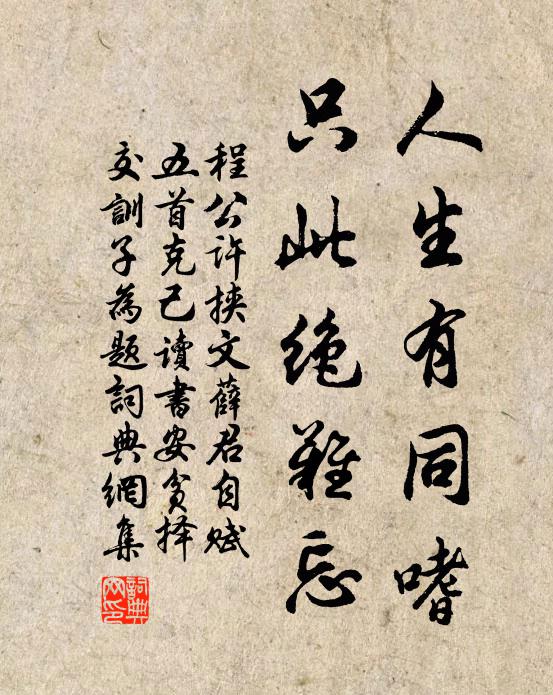 人生有同嗜
只此絶難忘
程公许挟文薛君自赋
五首克己讀書安貧择
交訓子為題詞典網集
詞典网印